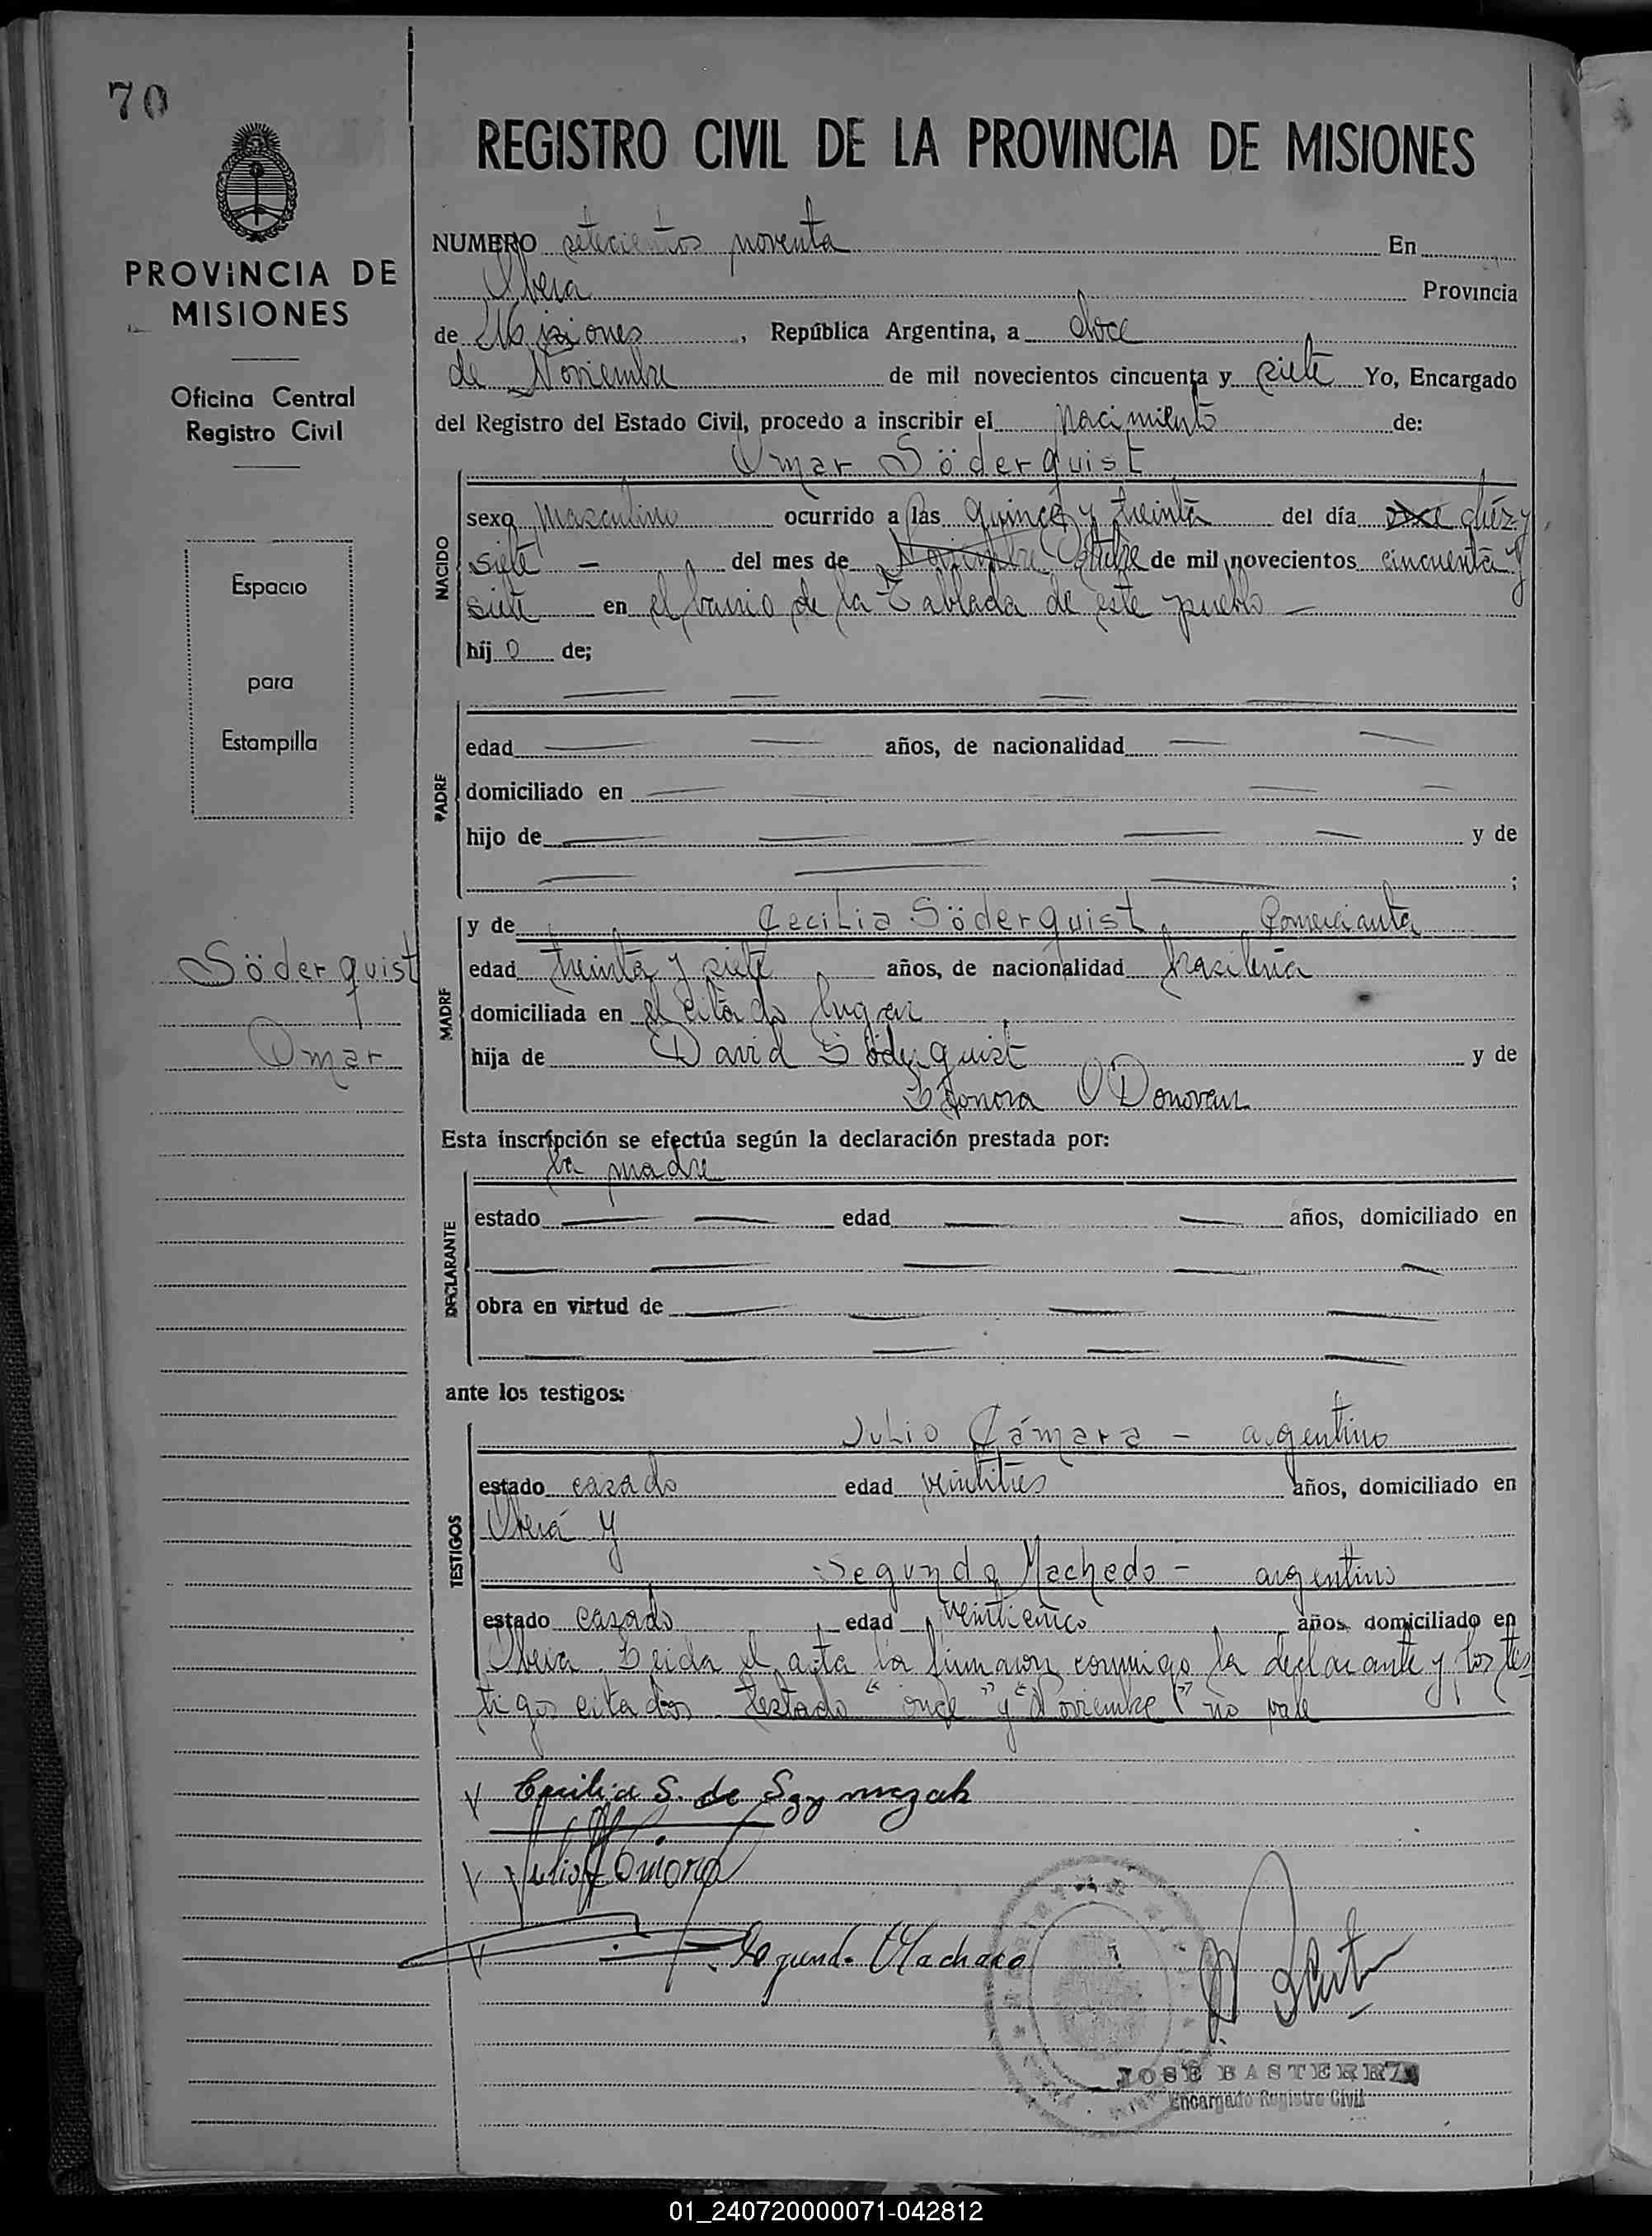 70
REGISTRO CIVIL DE LA PROVINCIA DE MISIONES
PROVINCIA DE
MISIONES
Oficina Central
Registro Civil
Espacio
para
Estampilla
Söderquist
Omar
NUMERO setecientos noventa En
Obera Provincia
de Misiones, República Argentina, a doce
de Noviembre de mil novecientos cincuenta y siete Yo, Encargado
del Registro del Estado Civil, procedo a inscribir el Nacimiento de:
Omar Söderquist
NACIDO
sexo Masculino ocurrido a las quince y treinta del día once diez y
siete — del mes de Noviembre Octubre de mil novecientos cincuenta y
siete en el barrio de la Tablada de este pueblo —
hijo de;
PADRE
edad años, de nacionalidad
domiciliado en
hijo de y de
;
MADRE
y de Cecilia Söderquist, Comercianta
edad treinta y siete, años, de nacionalidad brasileña
domiciliada en el citado lugar,
hija de David Söderquist y de
Leonora O Donovan
Esta inscripción se efectúa según la declaración prestada por:
la madre
DECLARANTE
estado edad años, domiciliado en
obra en virtud de
ante los testigos:
TESTIGOS
Julio Cámara — argentino
estado casado edad veintitres años, domiciliado en
Oberá y
Segundo Machado — argentino
estado casado, edad veinticinco años domiciliado en
Obera. Leida el acta la firmaron conmigo la declarante y los tes
tigos citados. Testado "once" y "Noviembre" no vale
Cecilia S. de Szymczak
Julio Cámara
Segundo Machado
JOSÉ BASTERRA
Encargado Registro Civil
01_240720000071-042812